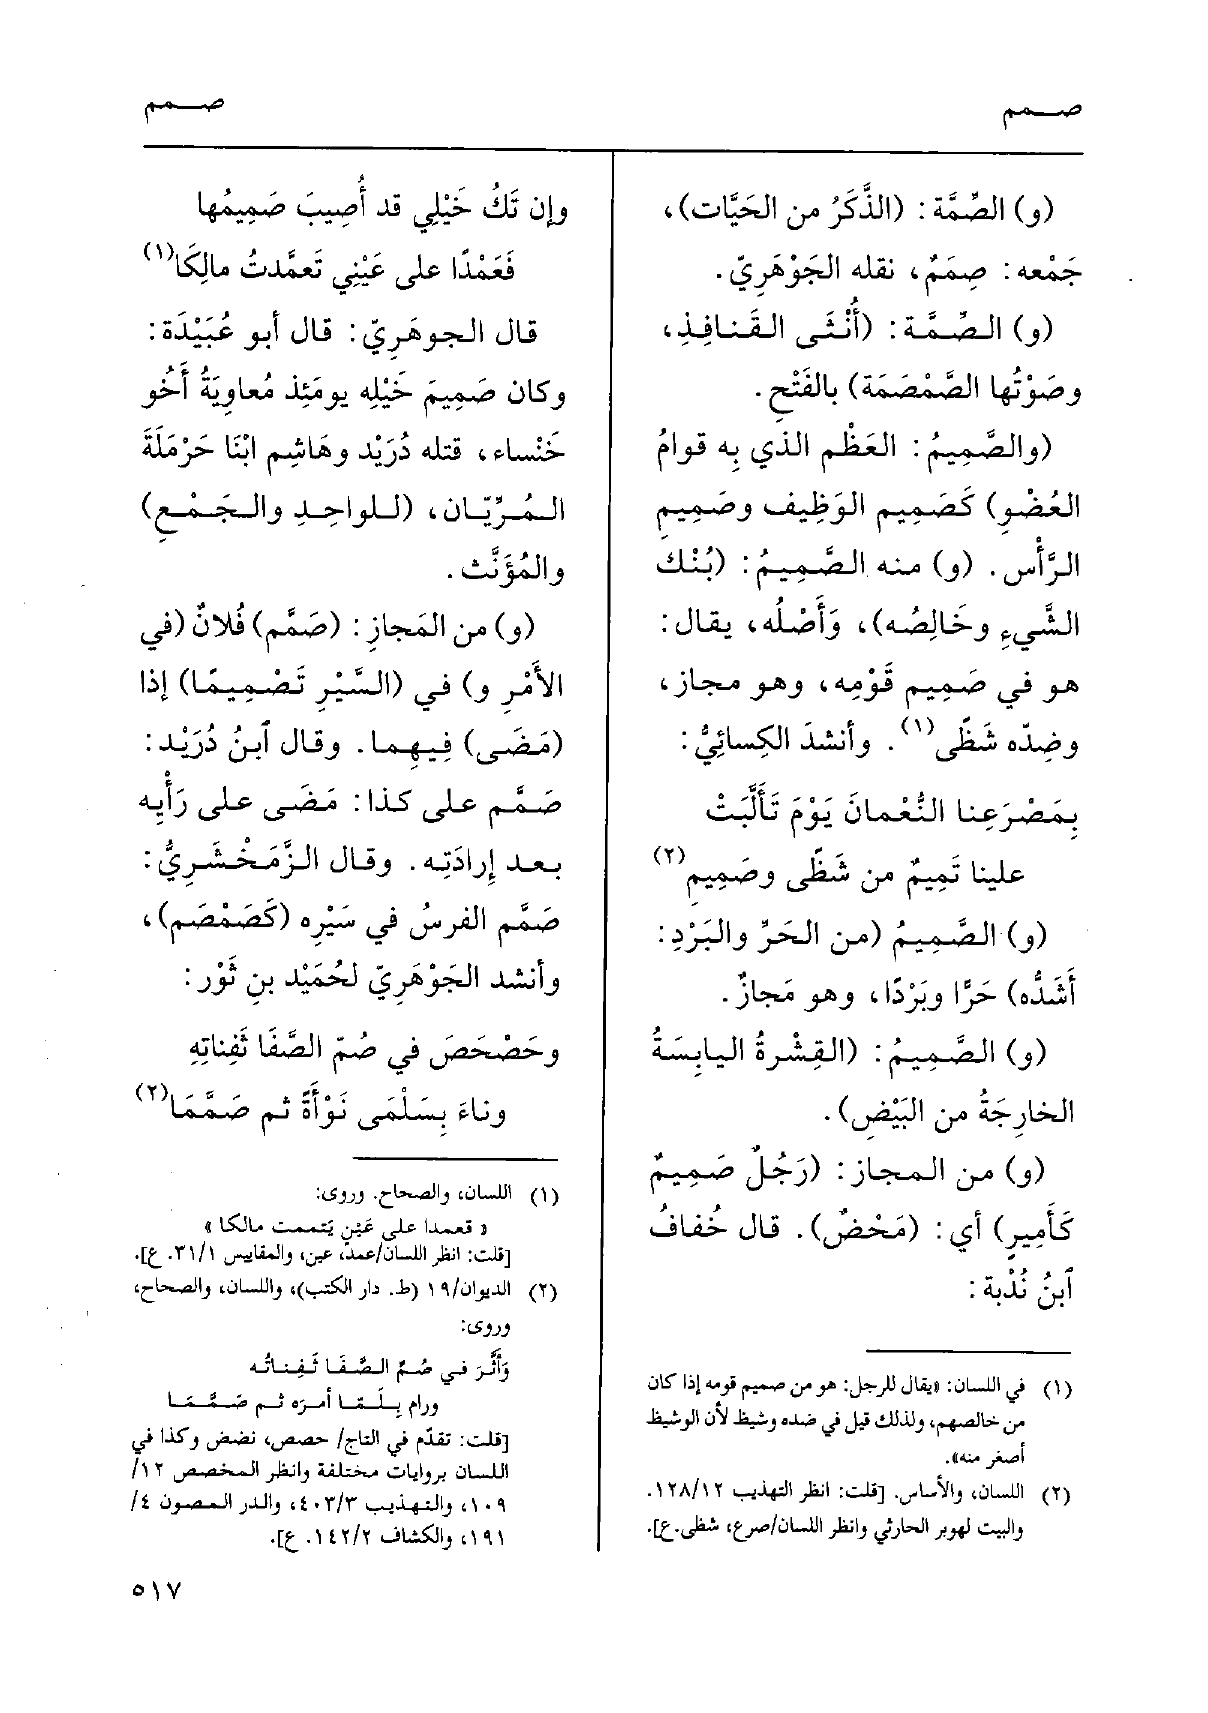 صمم
صمم
(و) الصِّمَّة: (الذَّكَرُ من الحَيَّات)،
جَمْعه: صِمَمٌ، نقله الجَوْهَرِيّ.
(و) الصِّمَّة: (أُنْثَى القَنافِذِ،
وصَوْتُها الصَّمْصَمَة) بالفَتْحِ.
(والصَّمِيمُ: العَظْم الذي بِه قوامُ
العُضْوِ) كَصَمِيمِ الوَظِيفِ وصَمِيمِ
الرَّأْس. (و) منه الصَّمِيمُ: (بُنْك
الشَّيءِ وخَالِصُه)، وَأَصْلُه، يقال:
هو في صَمِيمِ قَوْمِه، وهو مجاز،
وضِدّه شَظًى(١). وأنشدَ الكِسائِيُّ:
بِمَصْرَعِنا النُّعْمانَ يَوْمَ تَأَلَّبَتْ
علينا تَمِيمٌ من شَظًى وصَمِيمِ(٢)
(و) الصَّمِيمُ (من الحَرِّ والبَرْدِ:
أَشَدُّه) حَرًّا وبَرْدًا، وهو مَجازٌ.
(و) الصَّمِيمُ: (القِشْرةُ اليابِسَةُ
الخارِجَةُ من البَيْضِ).
(و) من المجاز: (رَجُلٌ صَمِيمٌ
كَأَمِيرٍ) أي: (مَحْضٌ). قال خُفافُ
ٱبنُ نُدْبة:
(١) في اللسان: «يقال للرجل: هو من صميم قومه إذا كان
من خالصهم، ولذلك قيل في ضده وشيظ لأن الوشيظ
أصغر منه».
(٢) اللسان، والأساس. [قلت: انظر التهذيب ١٢٨/١٢.
والبيت لهوبر الحارثي وانظر اللسان/صرع، شظى.ع].
وإن تَكُ خَيْلِي قد أُصِيبَ صَمِيمُها
فَعَمْدًا على عَيْنِي تَعمَّدتُ مالِكَا(١)
قال الجوهَرِيّ: قال أبو عُبَيْدَة:
وكان صَمِيمَ خَيْلِه يومَئِذ مُعاوِيَةُ أَخُو
خَنْساء، قتله دُرَيْد وهَاشِم ابْنَا حَرْمَلَةَ
المُرِّيّان، (للواحِدِ والجَمْعِ)
والمُؤَنَّث.
(و) من المَجازِ: (صَمَّم) فُلانٌ (في
الأَمْرِ و) في (السَّيْرِ تَصْمِيمًا) إذا
(مَضَى) فِيهِما. وقال ٱبنُ دُرَيْد:
صَمَّم على كذا: مَضَى على رَأْيِه
بعد إِرادَتِه. وقال الزَّمَخْشَرِيُّ:
صَمَّم الفرسُ في سَيْرِه (كَصَمْصَم)،
وأنشد الجَوْهَرِيّ لحُمَيْد بنِ ثَوْر:
وحَصْحَصَ في صُمّ الصَّفَا ثَفِناتِهِ
وناءَ بِسَلْمَى نَوْأَةً ثم صَمَّمَا(٢)
(١) اللسان، والصحاح. وروى:
« تعمدا على عَيْنٍ يَتممت مالكا »
[قلت: انظر اللسان/عمد، عين، والمقاييس ٣١/١. ع].
(٢) الديوان/١٩ (ط. دار الكتب)، واللسان، والصحاح،
وروى:
وَأَثَّرَ في صُمِّ الصَّفَا ثَفِناتُه
ورام بِلَمَّا أمرَه ثم صَمَّمَا
[قلت: تقدّم في التاج/ حصص، نضض وكذا في
اللسان بروايات مختلفة وانظر المخصص ١٢/
١٠٩، والتهذيب ٤٠٣/٣، والدر المصون ٤/
١٩١، والكشاف ١٤٢/٢. ع].
٥١٧